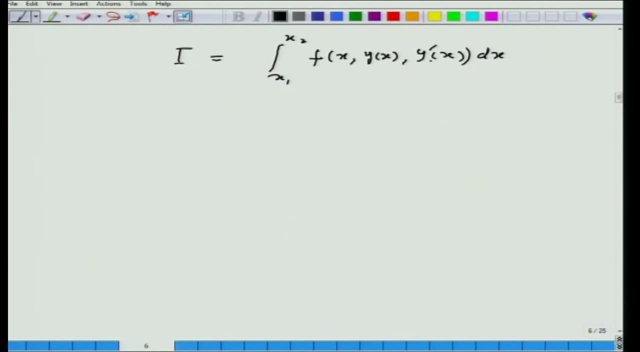 File View Insert Actions Tools Help
I = ∫_{x₁}^{x₂} f(x, y(x), y'(x)) dx
6 / 25
6